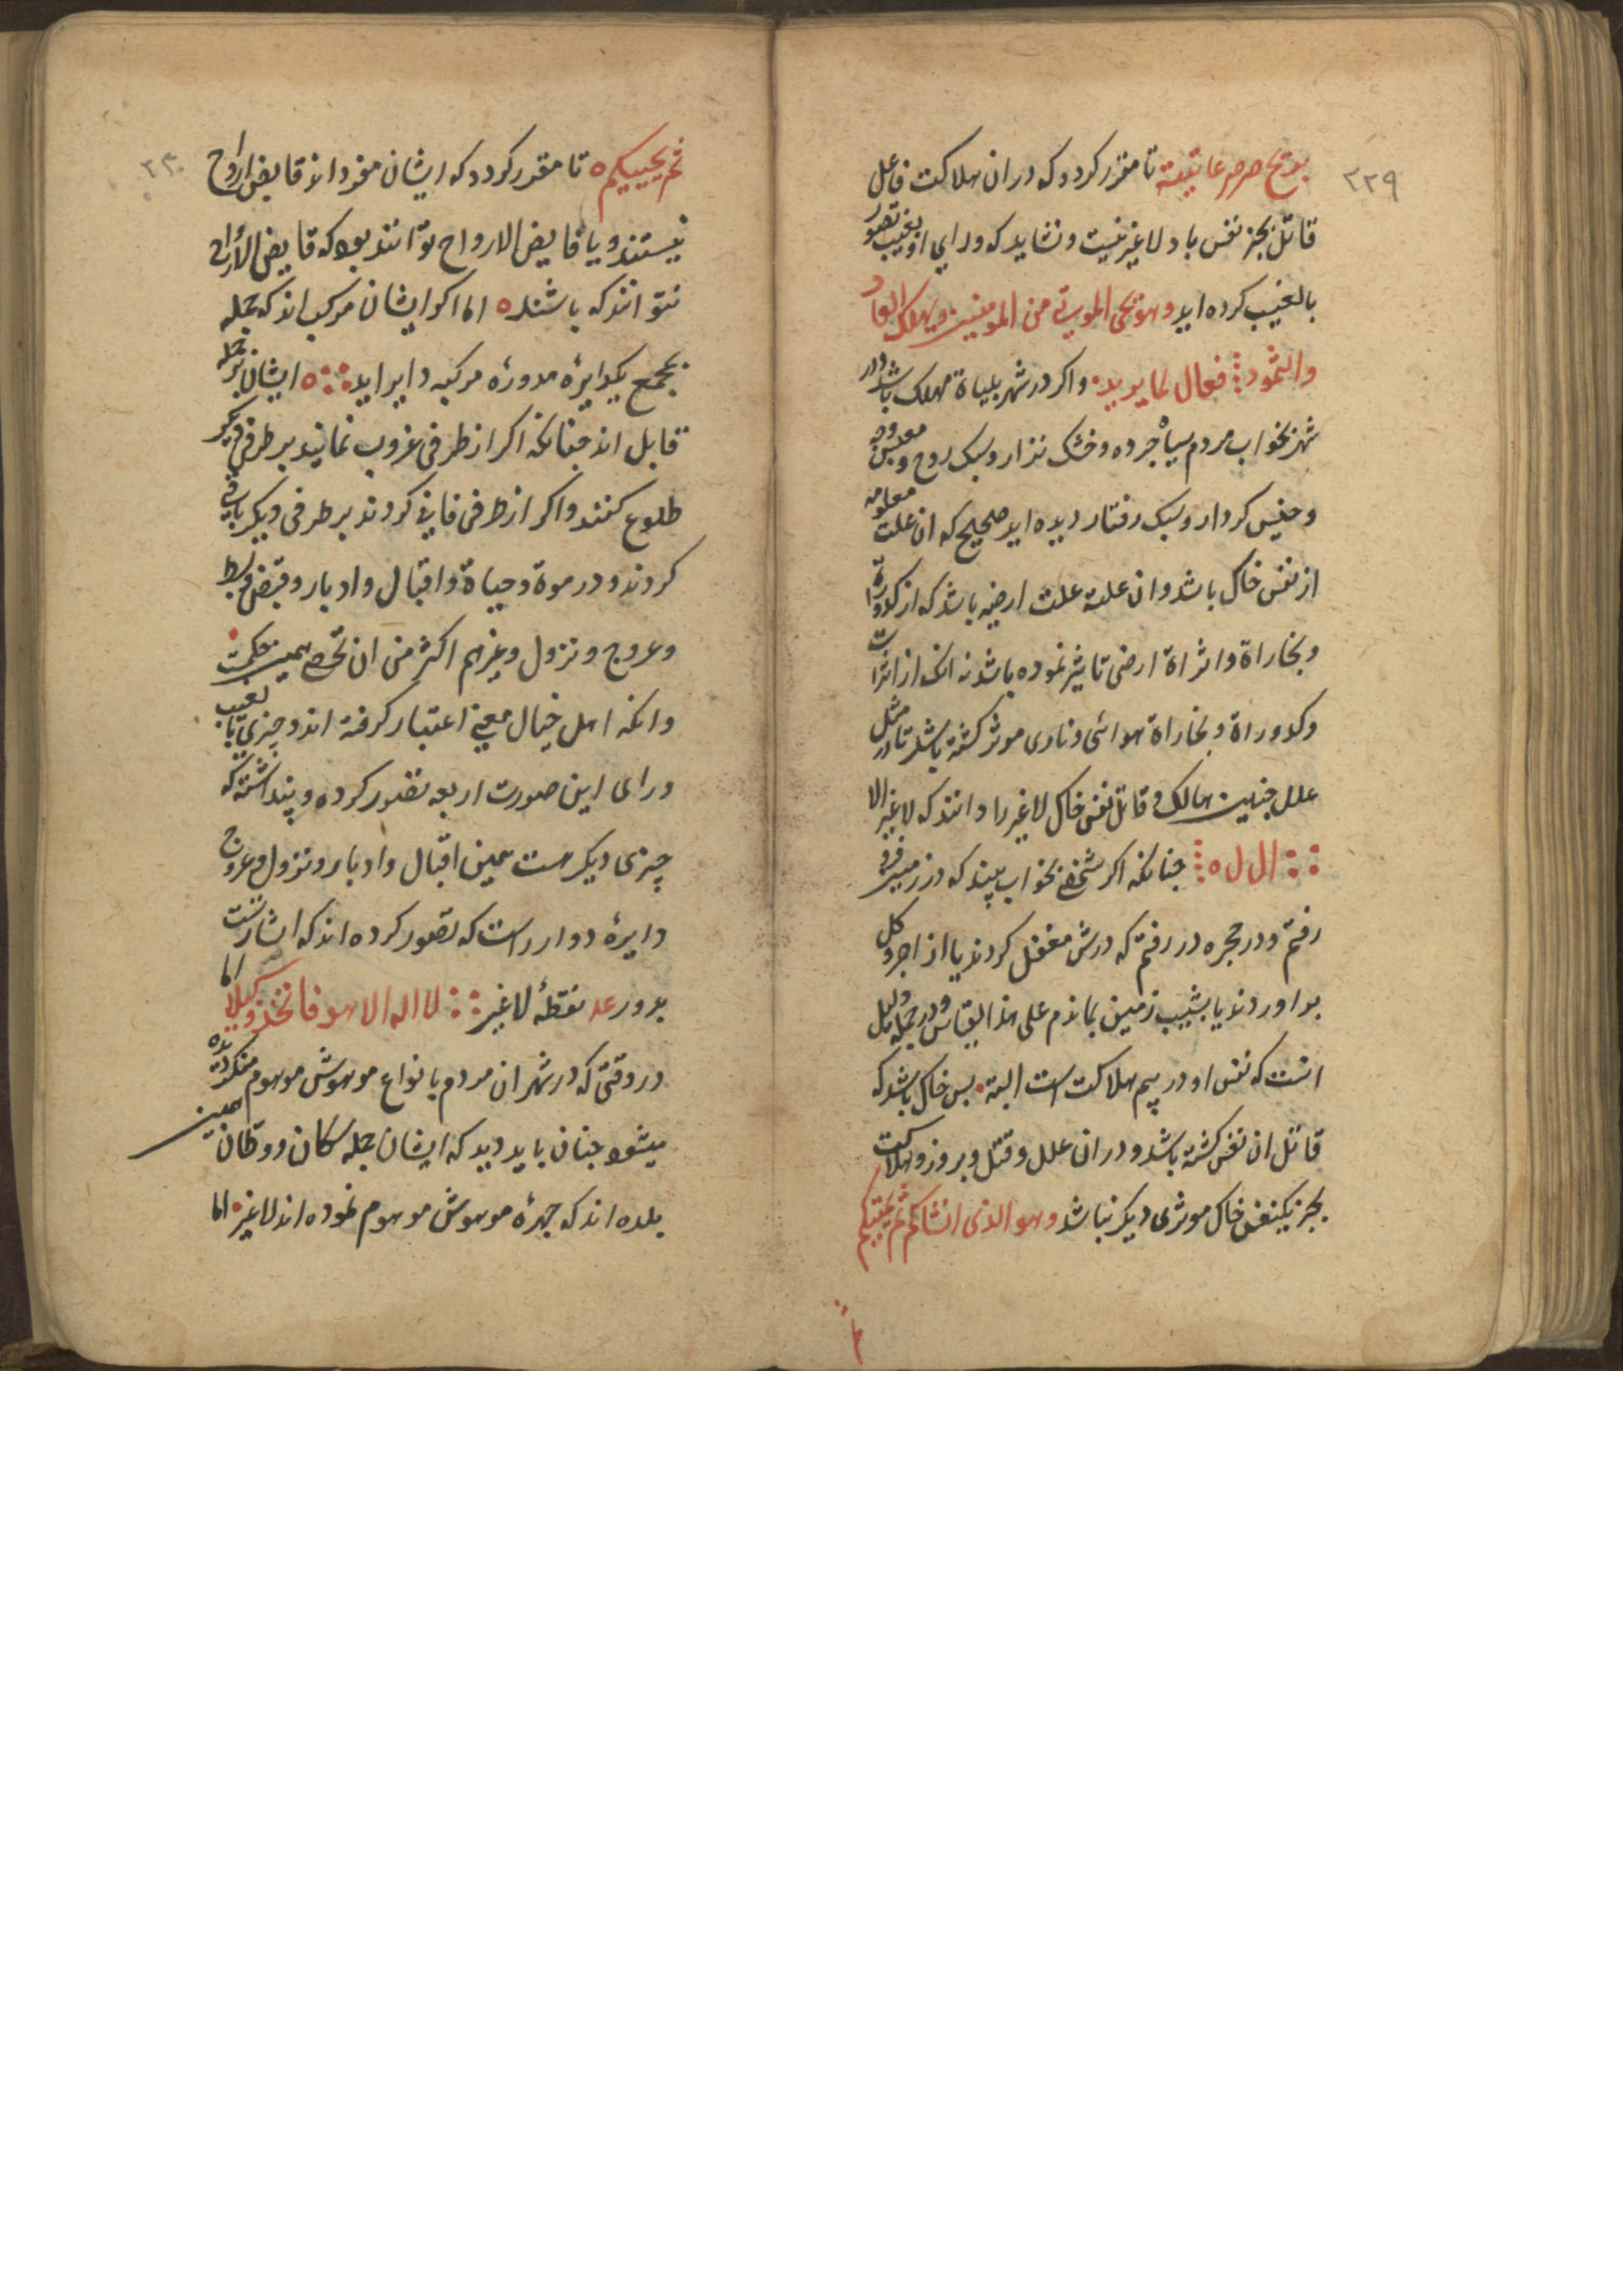 ۲۲۹
بریح صرصر عاتیة تا مقرر کردد که در ان هلاکت فاعل
قاتل بجز نفس باد لا غیر نیست و نشاید که ورای او بغیب تصور
بالغیب کرده اید وهو یحی الموتی من المومنین ویهلک العاد
والثمود فعال لما یرید واکر در شهر بلیاة مهلک باشد در
شهر بخواب مردم سیاه جرده و خشک نزار و سبک روح و
و کردار و سبک رفتار دیده اید صحیح که ان علت معلومه
از نفس خاک باشد و ان علة علت ارضیه باشد که از کدوراة
و بخاراة و اثراة ارضی تاثیر نموده باشد نه انک از اثرات
و کدوراة و بخاراة هوائی و ناری موثر کشته باشد تا در مثل
علل جنین هالک و قاتل نفس خاک لا غیر را دانند که لا غیر الا
ال ل ه جنانکه اکر شخصی بخواب بیند که در زمین فرو
رفتم و در حجره در رفتم که درش مغفل کردند یا از اجر و کل
بر اوردند یا بشیب زمین بماندم علی هذا القیاس و در جمله دلیل
انست که نفس او در بیم هلاکت است البته بس خاک باشد که
قاتل ان نفس کشته باشد و در ان علل و قتل و بروز و هلاکت
بجز یکنفس خاک موثری دیکر نباشد وهو الذی انشاکم ثم یمیتکم
۲۳۰
ثم یحییکم تا مقرر کردد که ایشان مفردا نه قابض ارواح
نیستند و یا قابض الارواح توانند بود که قابض الارواح
نتوانند که باشند اما اکر ایشان مرکب اند که جمله
بجمع یکدایره مدوره مرکبه دایر اید ایشان نیز جمله
قابل اند جنانکه اکر از طرفی غروب نمایند بر طرفی دیکر
طلوع کنند و اکر از طرفی فانی کردند بر طرفی دیکر باقی
کردند و در موة و حیاة و اقبال و ادبار و قبض و بسط
و عروج و نزول و غیرهم اکثر من ان تحصی همین حکمت
و انکه اهل خیال معنی اعتبار کرفته اند و چیزی با لغیب
ورای این صورت اربعه تصور کرده و پنداشته که
چیزی دیکر هست همین اقبال و ادبار و نزول و عروج
دایره دوار راست که تصور کرده اند که اشارتست
بدور عد نقطه لا غیر لا اله الا هو فاتخذه وکیلا اما
در وقتی که در شهر ان مردم بانواع موهوش موهوم منکر دیده
میشود جنان باید دید که ایشان جمله سکان و وطان همین
بلده اند که جهره موهوش موهوم نموده اند لا غیر اما